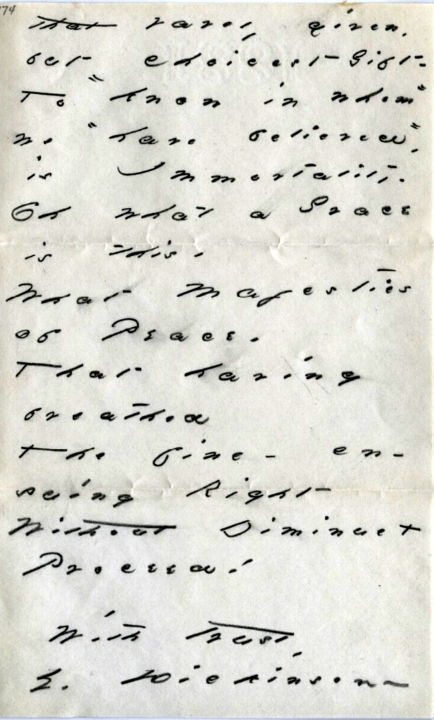 74
That rarely given,
but choicest Gift-
To "know in whom"
we "have believed",
is Immortality.
Oh what a Grace
is this,
What Majesties
of Peace,
That having
breathed
The fine - en-
suing Right
Without Diminuet
Proceed!
With trust,
E. Dickinson -